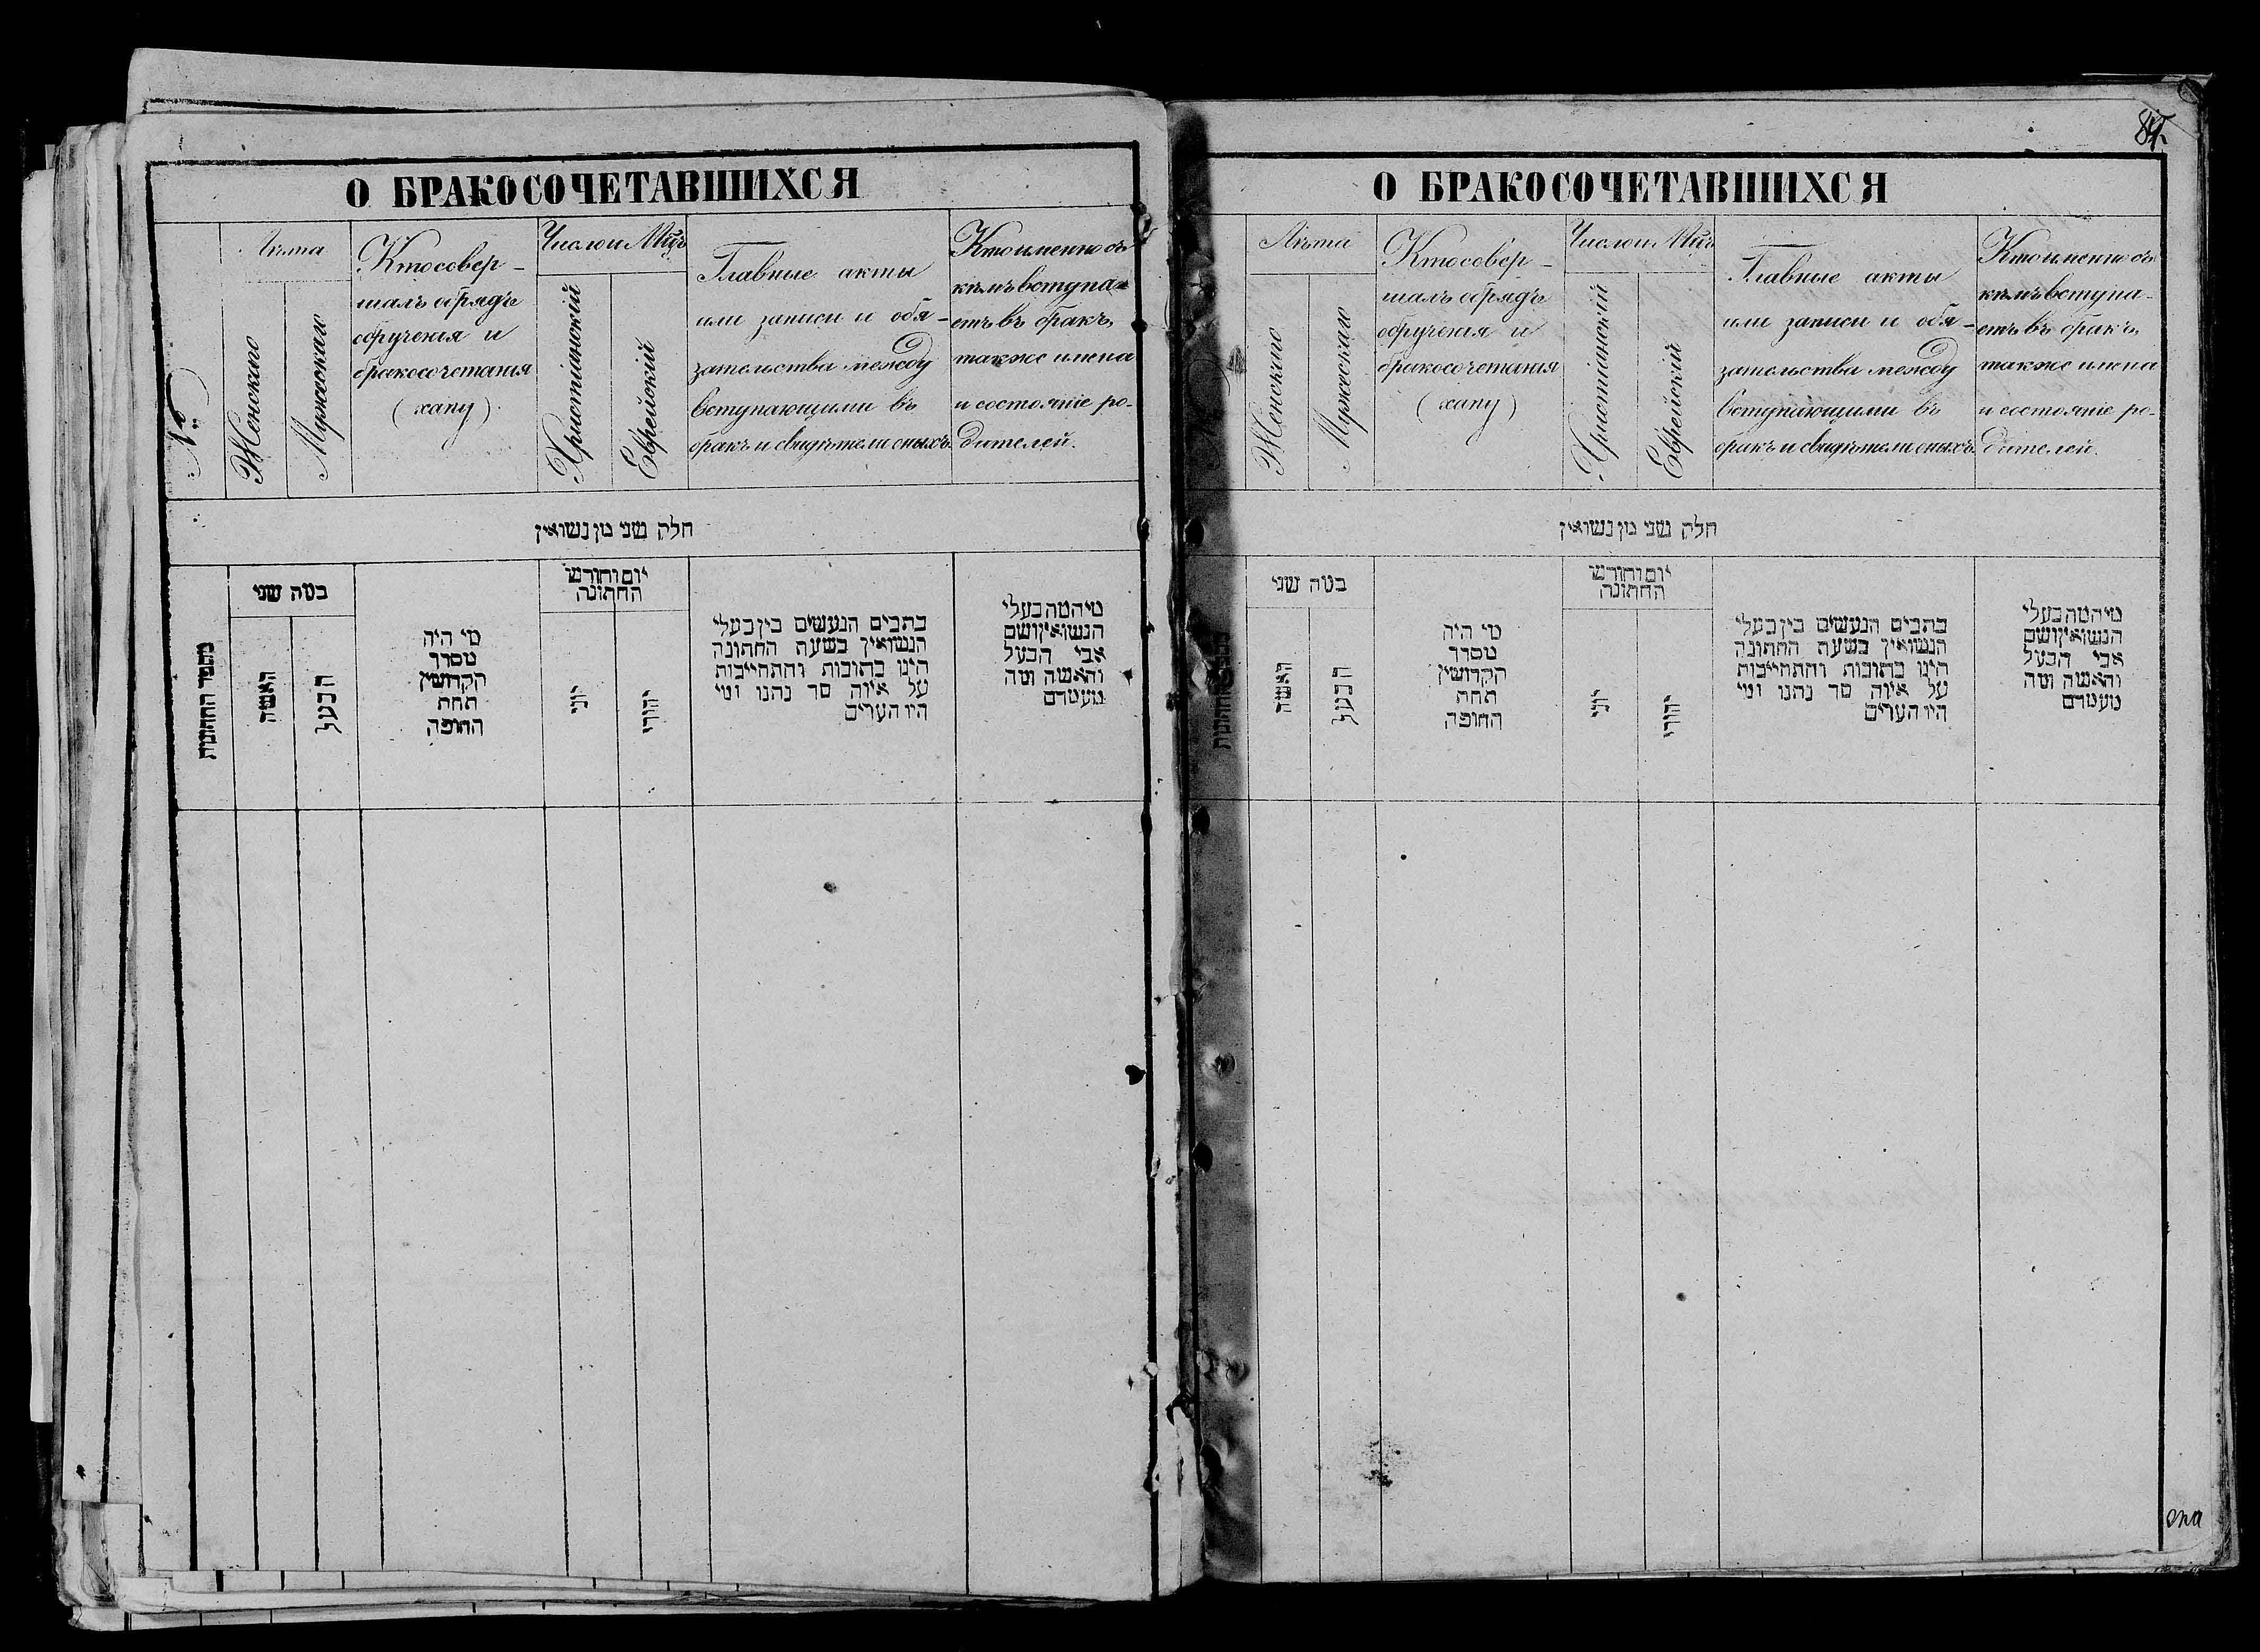 О БРАКОСОЧЕТАВШИХСЯ
№
Лѣта
Женскаго
Мужескаго
Кто совер-
шалъ обрядъ
обрученія и
бракосочетанія
(хапу)
Число и Мцъ
Христіанскій
Еврейскій
Главные акты
или записи и обя-
зательства между
вступающими въ
бракъ и свидѣтели оныхъ.
Кто именно съ
кѣмъ вступа-
етъ въ бракъ,
также имена
и состояніе ро-
дителей.
חלק שני מן נשואין
מספר החתונות
במה שני
האשה
הבעל
מי היה
מסדר
הקדושין
תחת
החופה
יום וחודש
החתונה
יוני
יהודי
כתבים הנעשים בין בעלי
הנשואין בשעת החתונה
היינו כתובות והתחייבות
על איזה סך נתנו ומי
היו העדים
מי המה בעלי
הנשואין ושם
אבי הבעל
והאשה ומה
מעמדם
84.
О БРАКОСОЧЕТАВШИХСЯ
Лѣта
Женскаго
Мужескаго
Кто совер-
шалъ обрядъ
обрученія и
бракосочетанія
(хапу)
Число и Мцъ
Христіанскій
Еврейскій
Главные акты
или записи и обя-
зательства между
вступающими въ
бракъ и свидѣтели оныхъ.
Кто именно съ
кѣмъ вступа-
етъ въ бракъ,
также имена
и состояніе ро-
дителей.
חלק שני מן נשואין
במה שני
האשה
הבעל
מי היה
מסדר
הקדושין
תחת
החופה
יום וחודש
החתונה
יוני
יהודי
כתבים הנעשים בין בעלי
הנשואין בשעת החתונה
היינו כתובות והתחייבות
על איזה סך נתנו ומי
היו העדים
מי המה בעלי
הנשואין ושם
אבי הבעל
והאשה ומה
מעמדם